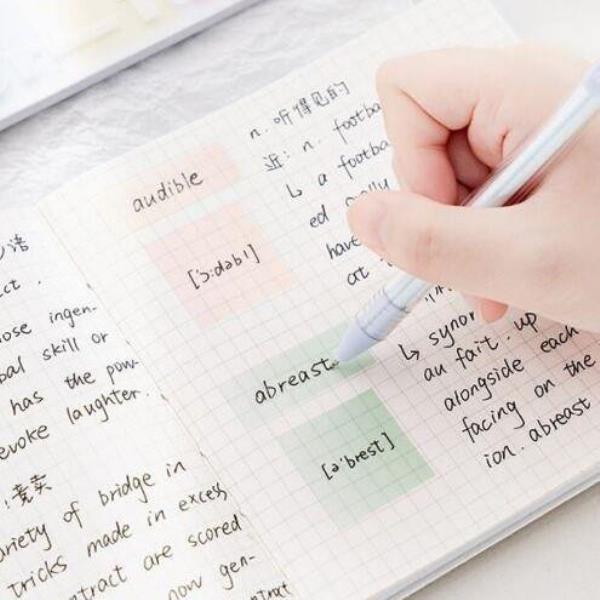 语
ct.
ose ingen-
bal skill or
has the pow-
evoke laughter.
竞卖
riety of bridge in
tricks made in excess
ntract are scored
now gen-
ntract
audible
['ɔ:dəbl]
abreast
[ə'brest]
n. 听得见的
近: n. footba
↳ a footba
ed
have
at
↳ synon
au fait. up
alongside each
facing on the
ion. abreast